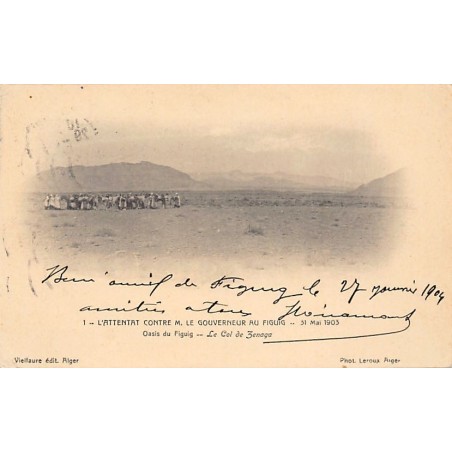 Figuig le 27 janvier 1904
amitiés a tous
1 -- L'ATTENTAT CONTRE M. LE GOUVERNEUR AU FIGUIG -- 31 Mai 1903
Oasis du Figuig -- Le Col de Zenaga
Vielfaure édit. Alger
Phot. Leroux Alger